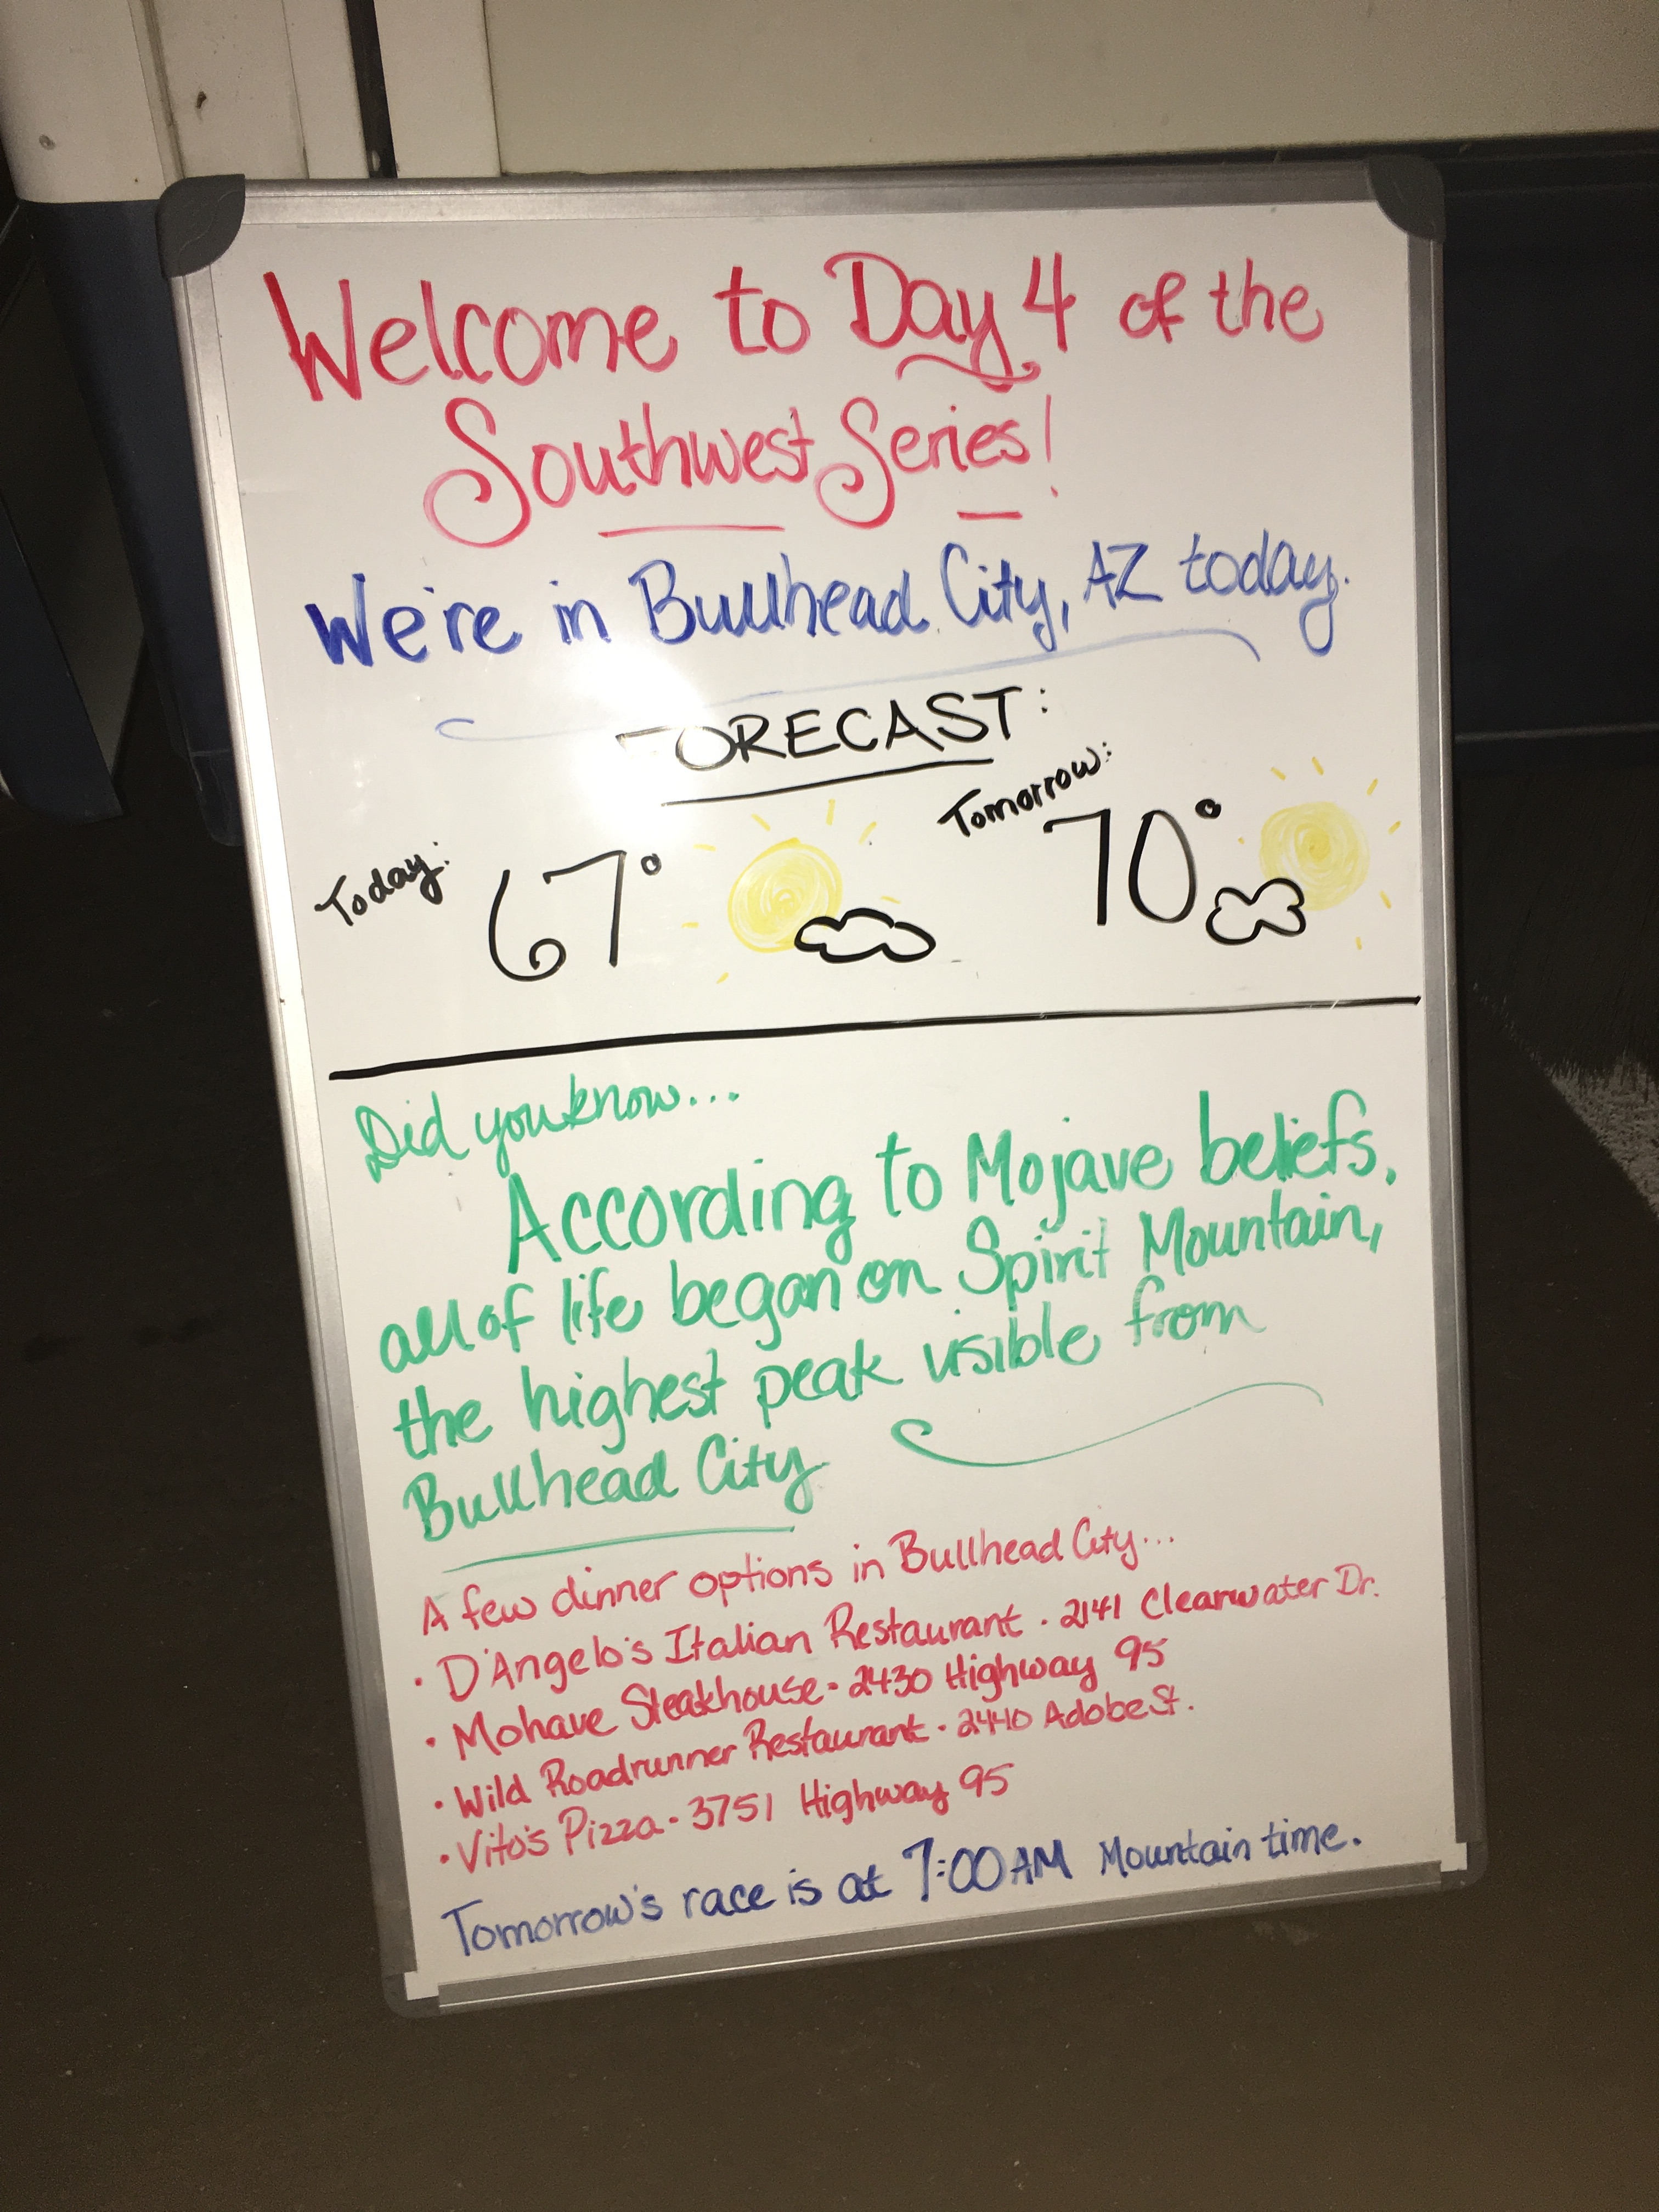 Welcome to Day 4 of the
Southwest Series!
We're in Bullhead City, AZ today.
FORECAST:
Today:
67°
Tomorrow:
70°
Did you know...
According to Mojave beliefs,
all of life began on Spirit Mountain,
the highest peak visible from
Bullhead City
A few dinner options in Bullhead City...
· D'Angelo's Italian Restaurant · 2141 Clearwater Dr.
· Mohave Steakhouse - 2430 Highway 95
· Wild Roadrunner Restaurant · 2440 Adobe St.
· Vito's Pizza - 3751 Highway 95
Tomorrow's race is at 7:00 AM Mountain time.